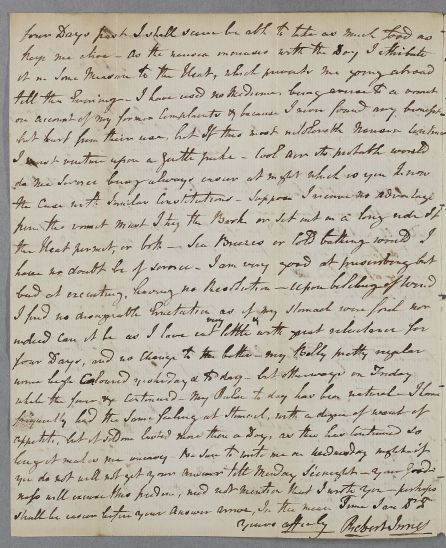 four Days past I shall scarce be able to take as much food as
keep me alive – As the nausea increases with the Day I attribute
it in Some Measure to the Heat, which prevents me going abroad
till the Evening – I have used no Medicines being averse to a vomit
on account of my former Complaints & because I never found any benefit
but hurt from their use, but If this most Nausea Continues
I must venture upon a gentle puke – Cool air its probable would
do me Service being always easier at night which as you know
the Case with Similar Constitutions – Suppose I receive no advantage
from the vomit must I try the Bark or set out on a long ride If
the Heat permit or both – Sea Breezes or Cold bathing would I
have no doubt be of service – I am very good at prescribing but
bad at executing, having no Resolution – Upon belching of Wind
I find no disagreeable Eructation as if my Stomach were foul nor
indeed can it be as I have eat very little & with great reluctance for
four Days, and no change to the better – my Belly pretty regular
some high Coloured yesterday & to day – but otherways on Friday
while the fever Continued – My Pulse to day has been natural – I have
frequently had the same feeling at Stomach, with a degree of want of
appetite, but it Seldom lasted more than a Day, as this has Continued so
long it makes me uneasy – Be sure to write me on Wednesday night if
you do not will not get your answer till Monday Sennight – your good-
ness will excuse this freedom, need not mention that I wrote you – perhaps
shall be easier before your answer arrive, In the mean Time I am Dr
Yours affly Robert Innes